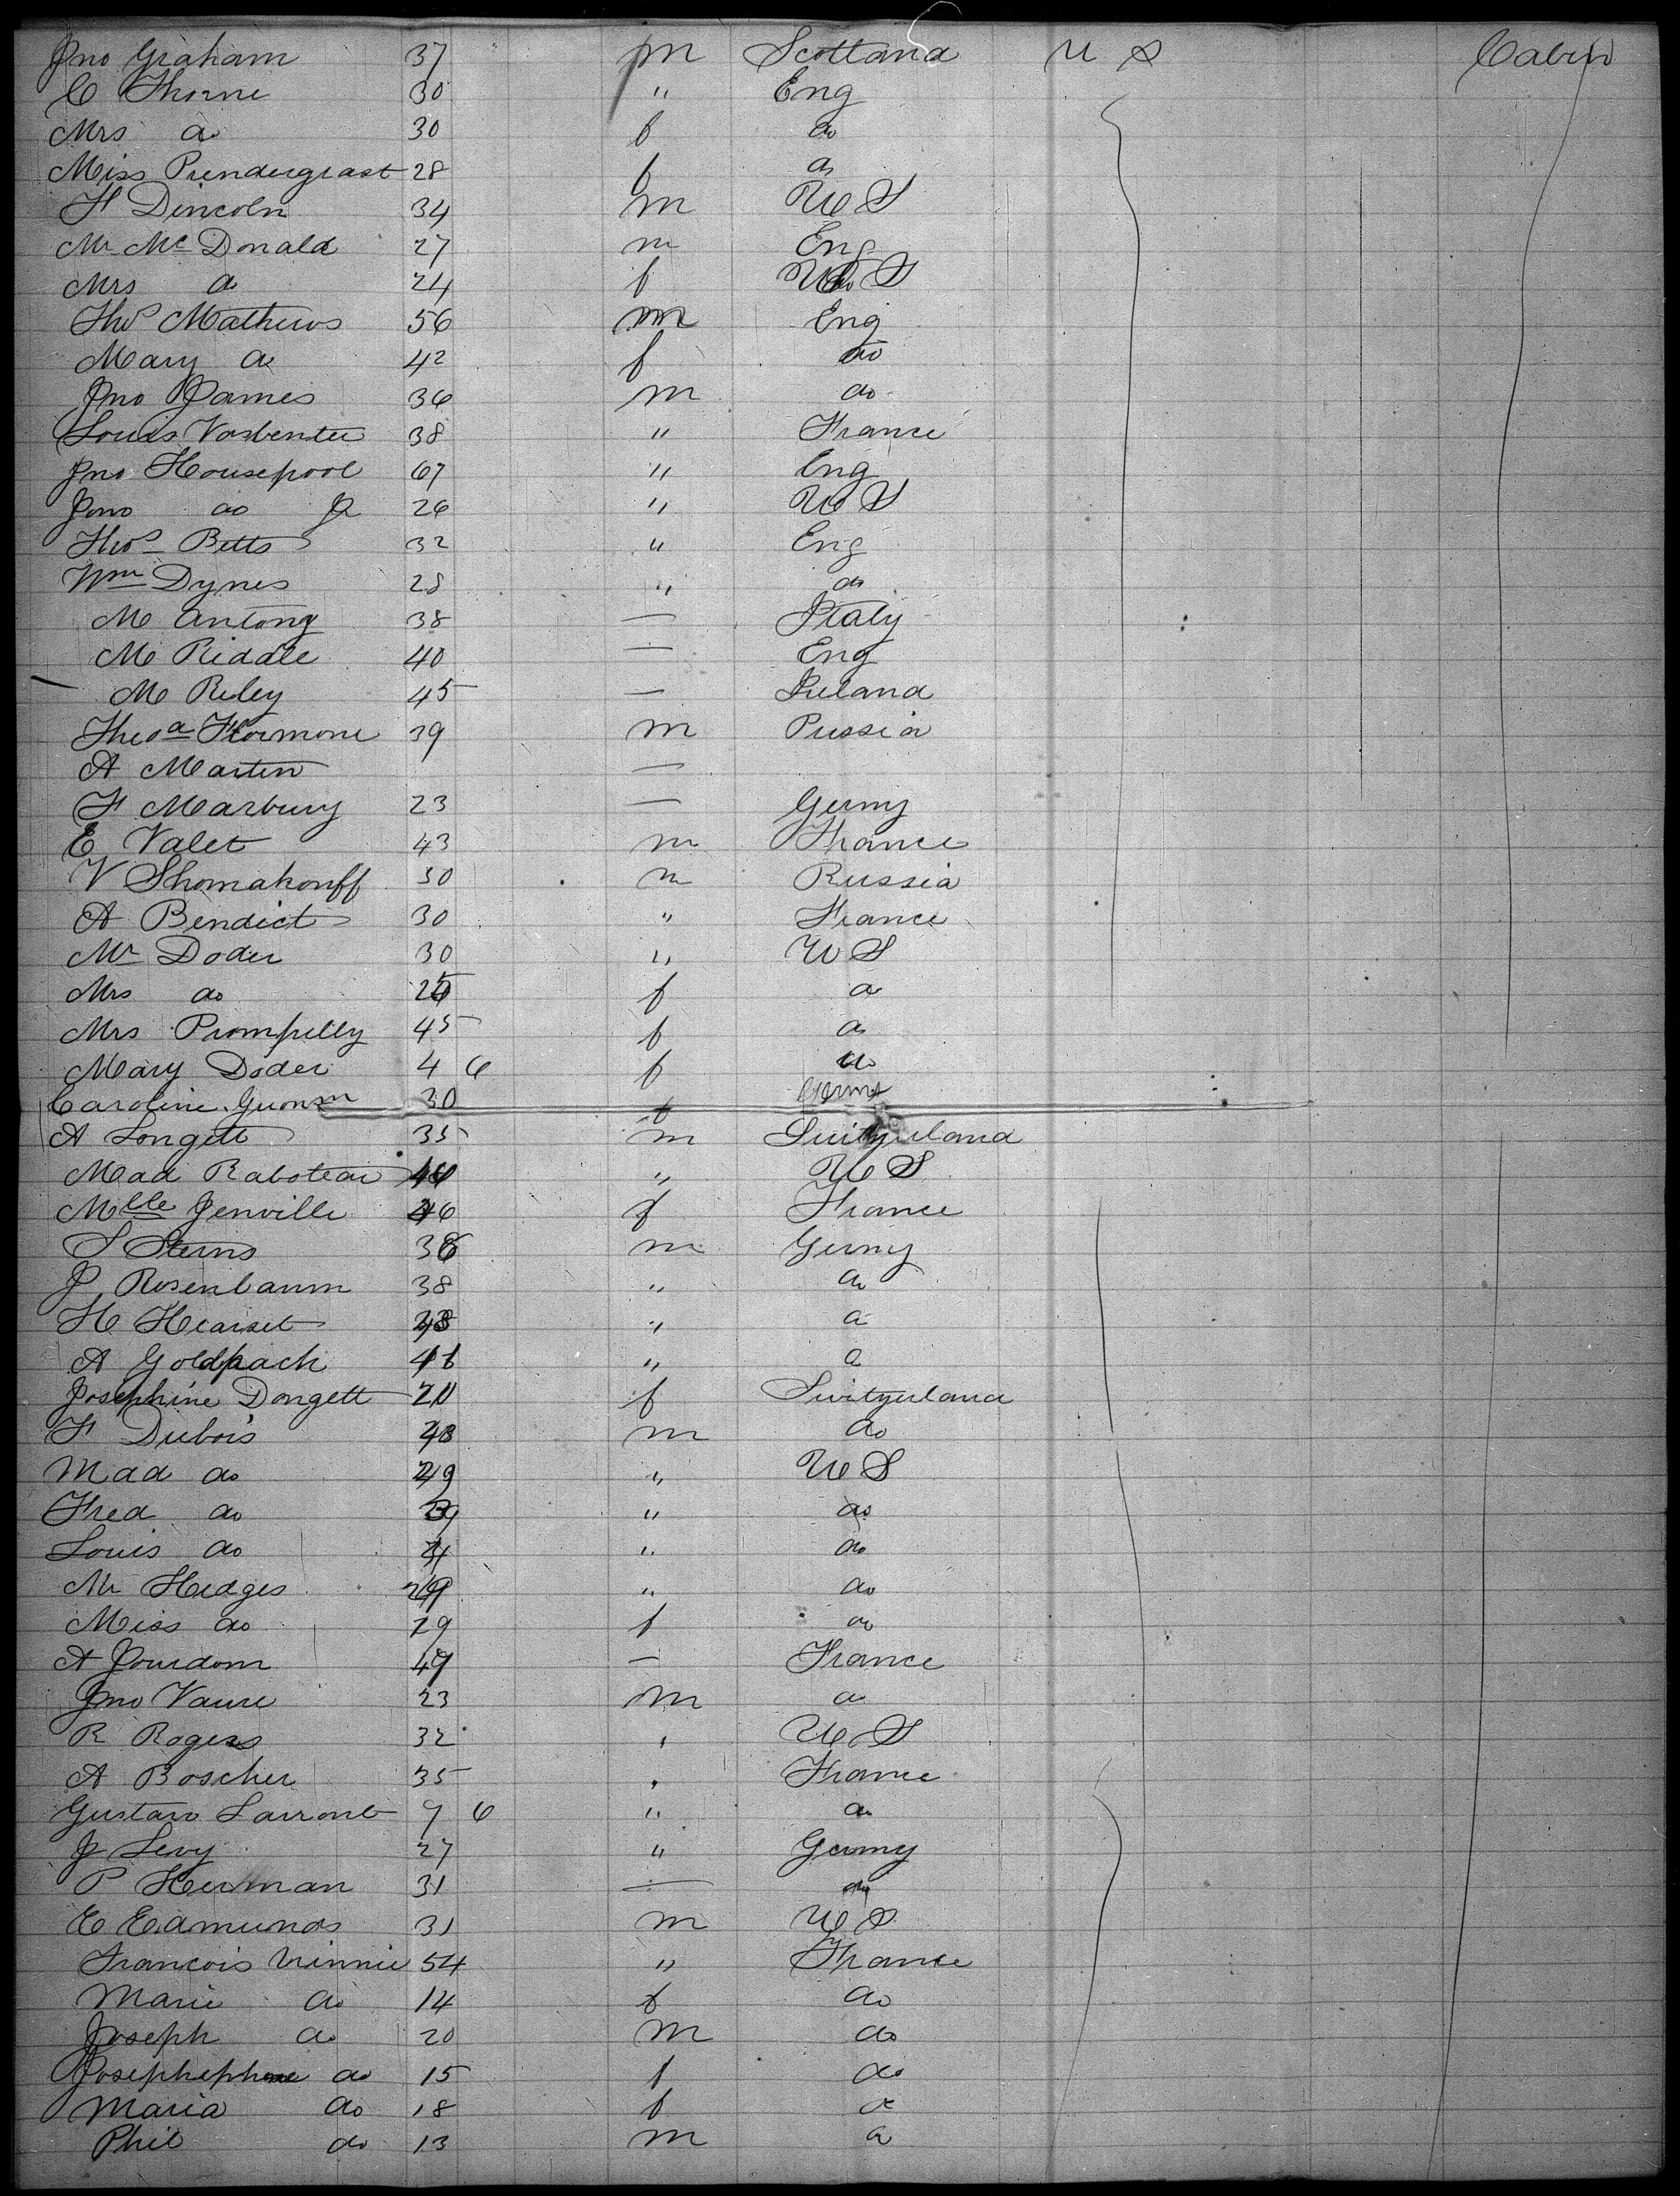 Jno Graham 37 m Scotland U S Cabin
C Thorne 30 " Eng
Mrs do 30 f do
Miss Prendergrast 28 f do
F Dincoln 34 m U S
Mr McDonald 27 m Eng
Mrs do 24 f U S
Thos Mathews 56 m Eng
Mary do 42 f do
Jno James 36 m do
Louis Vasbenter 38 " France
Jno Housepool 67 " Eng
Jono do Jr 26 " U S
Thos Betts 32 " Eng
Wm Dynes 28 " do
M Antong 38 — Italy
M Riddle 40 — Eng
M Riley 45 — Ireland
Theoa Hormone 39 m Prussia
A Martin —
F Marbury 23 — Germy
E Valet 43 m France
V Shomakonff 30 m Russia
A Bendict 30 " France
Mr Doder 30 " U S
Mrs do f do
Mrs Prompelly 45 f do
Mary Doder 4 6 f do
Caroline 30 f Germy
A Longett 35 m Switzerland
Mad Raboteau " U S
Mlle Jenville f France
S Sterns m Germy
J Rosenbaum 38 " do
H Hearset " do
A Goldpach " do
Josephine Dongett f Switzerland
F Dubois m do
Mad do " U S
Fred do " do
Louis do " do
Mr Hedges " do
Miss do 29 f do
A Jourdom — France
Jno Vaure 23 m do
R Rogers 32 " U S
A Boscher 35 " France
Gustav Larront 9 6 " do
J Levy 27 " Germy
P Herman 31 — do
E Edmunds 31 m U S
Francois Vinnie 54 " France
Marie do 14 f do
Joseph do 20 m do
Josephephene do 15 f do
Maria do 18 f do
Phil do 13 m do